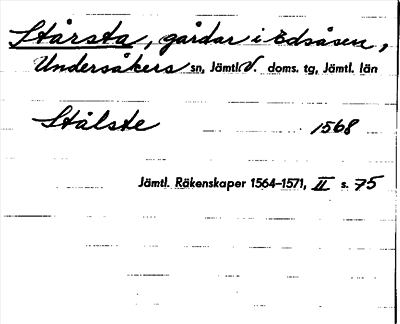 Stårsta, gårdar i Edsåsen,
Undersåkers sn, Jämtl. V doms. tg, Jämtl. län
Stålste 1568
Jämtl. Räkenskaper 1564–1571, II s. 75